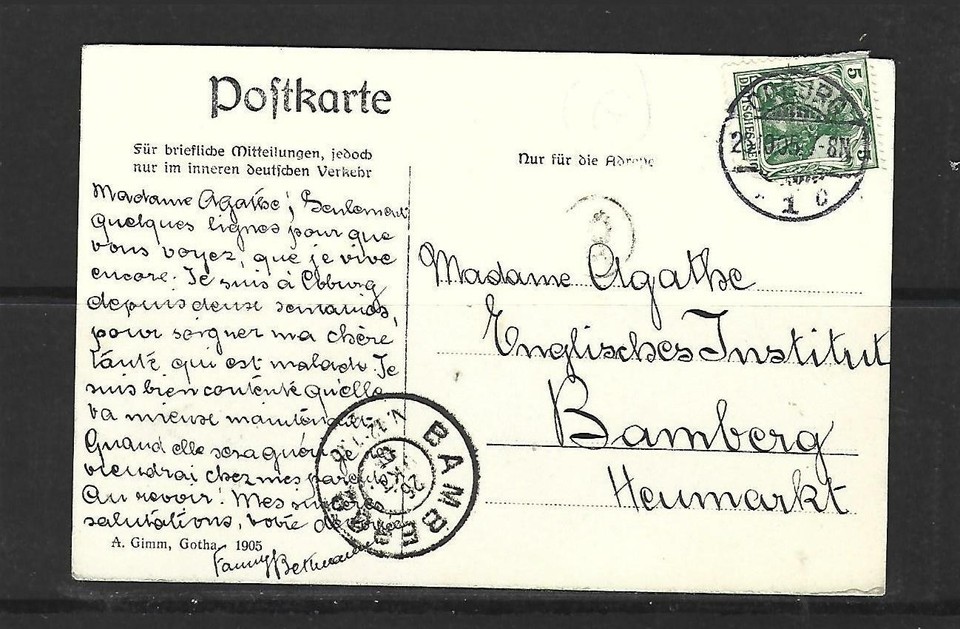 Postkarte
Für briefliche Mitteilungen, jedoch
nur im inneren deutschen Verkehr
Nur für die Adresse
5
DEUTSCHES REICH
5
COBURG
.10.05. 8N
* 1 c
Madame Agathe! Seulement
quelques lignes pour que
vous voyez, que je vive
encore. Je suis à Cobourg
depuis deux semaines,
pour soigner ma chère
tante qui est malade. Je
suis bien contente qu'elle
va mieux maintenant.
Quand elle sera guérie je
viendrai chez mes parents
Au revoir! Mes
salutations, votre
Fanny
A. Gimm, Gotha 1905
Madame Agathe
Englisches Institut
Bamberg
Heumarkt
BAMBERG